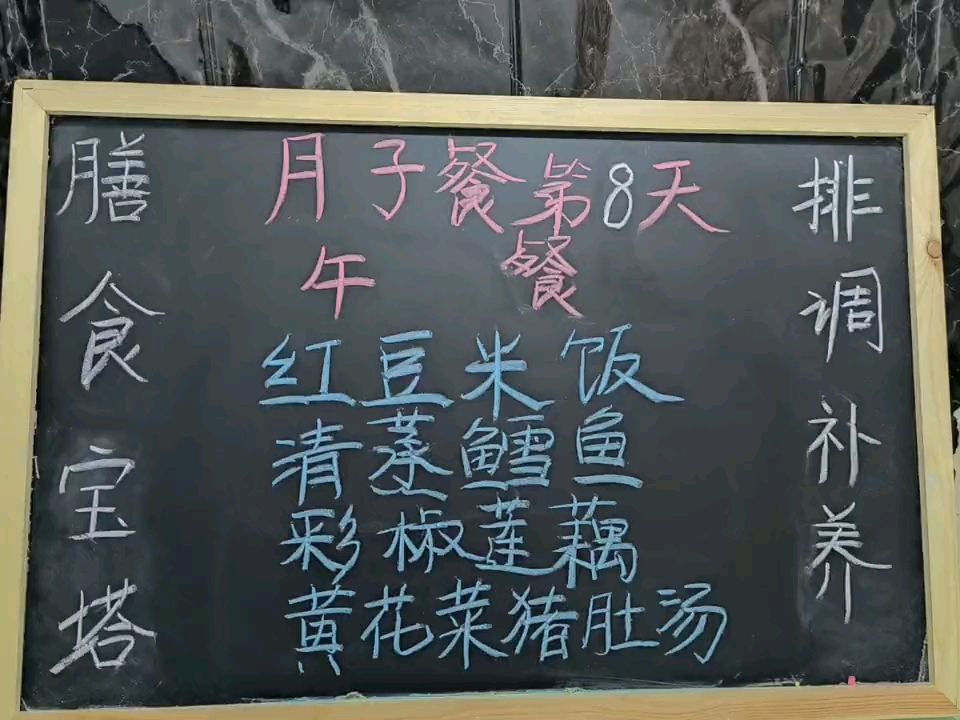 膳食宝塔
月子餐第8天
午餐
红豆米饭
清蒸鳕鱼
彩椒莲藕
黄花菜猪肚汤
排调补养